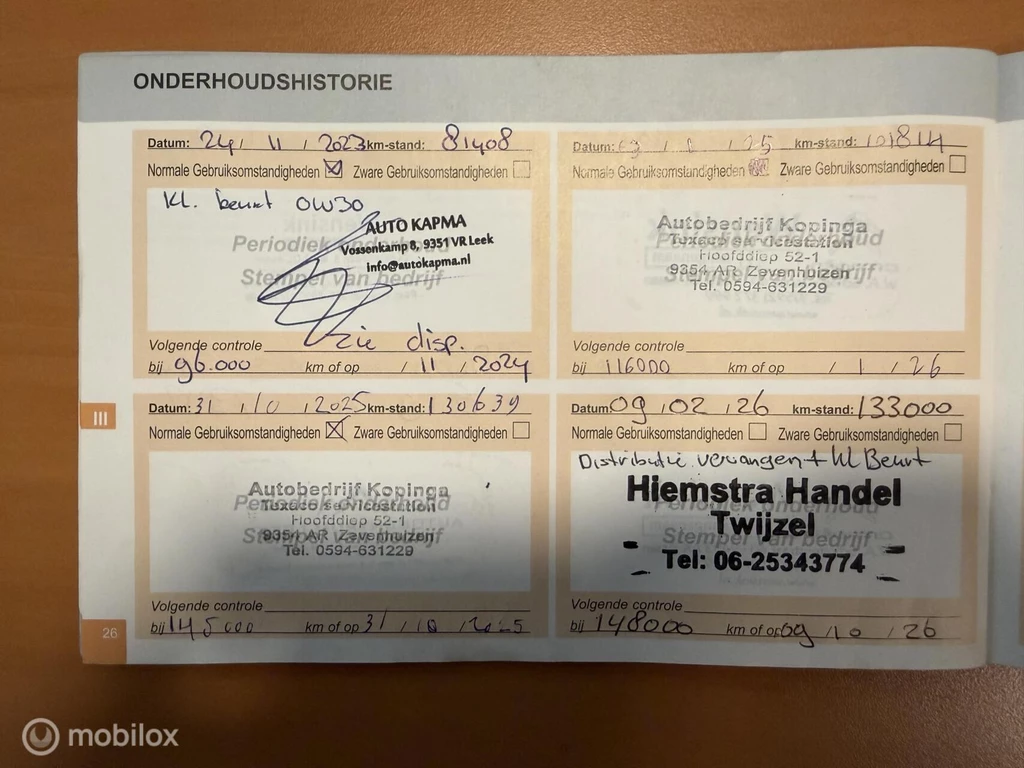 ONDERHOUDSHISTORIE
Datum: 24 / 11 / 2023 km-stand: 81408
Normale Gebruiksomstandigheden Zware Gebruiksomstandigheden
Kl. beurt 0W30
AUTO KAPMA
Vossenkamp 8, 9351 VR Leek
info@autokapma.nl
Periodiek onderhoud
Stempel van bedrijf
Volgende controle zie disp.
bij 96.000 km of op / 11 / 2024
Datum: / / 25 km-stand: 101814
Normale Gebruiksomstandigheden Zware Gebruiksomstandigheden
Autobedrijf Kopinga
Texaco servicestation
Hoofddiep 52-1
9354 AR Zevenhuizen
Tel. 0594-631229
Volgende controle
bij 116000 km of op / 1 / 26
III
Datum: 31 / 10 / 2025 km-stand: 130639
Normale Gebruiksomstandigheden Zware Gebruiksomstandigheden
Autobedrijf Kopinga
Texaco servicestation
Hoofddiep 52-1
9354 AR Zevenhuizen
Tel. 0594-631229
Periodiek onderhoud
Stempel van bedrijf
Volgende controle
bij 145000 km of op 31 / 10 / 2025
Datum: 09 / 02 / 26 km-stand: 133000
Normale Gebruiksomstandigheden Zware Gebruiksomstandigheden
Distributie vervangen + kl Beurt
Hiemstra Handel
Twijzel
Stempel van bedrijf
Tel: 06-25343774
Volgende controle
bij 148000 km of op 09 / 10 / 26
26
mobilox